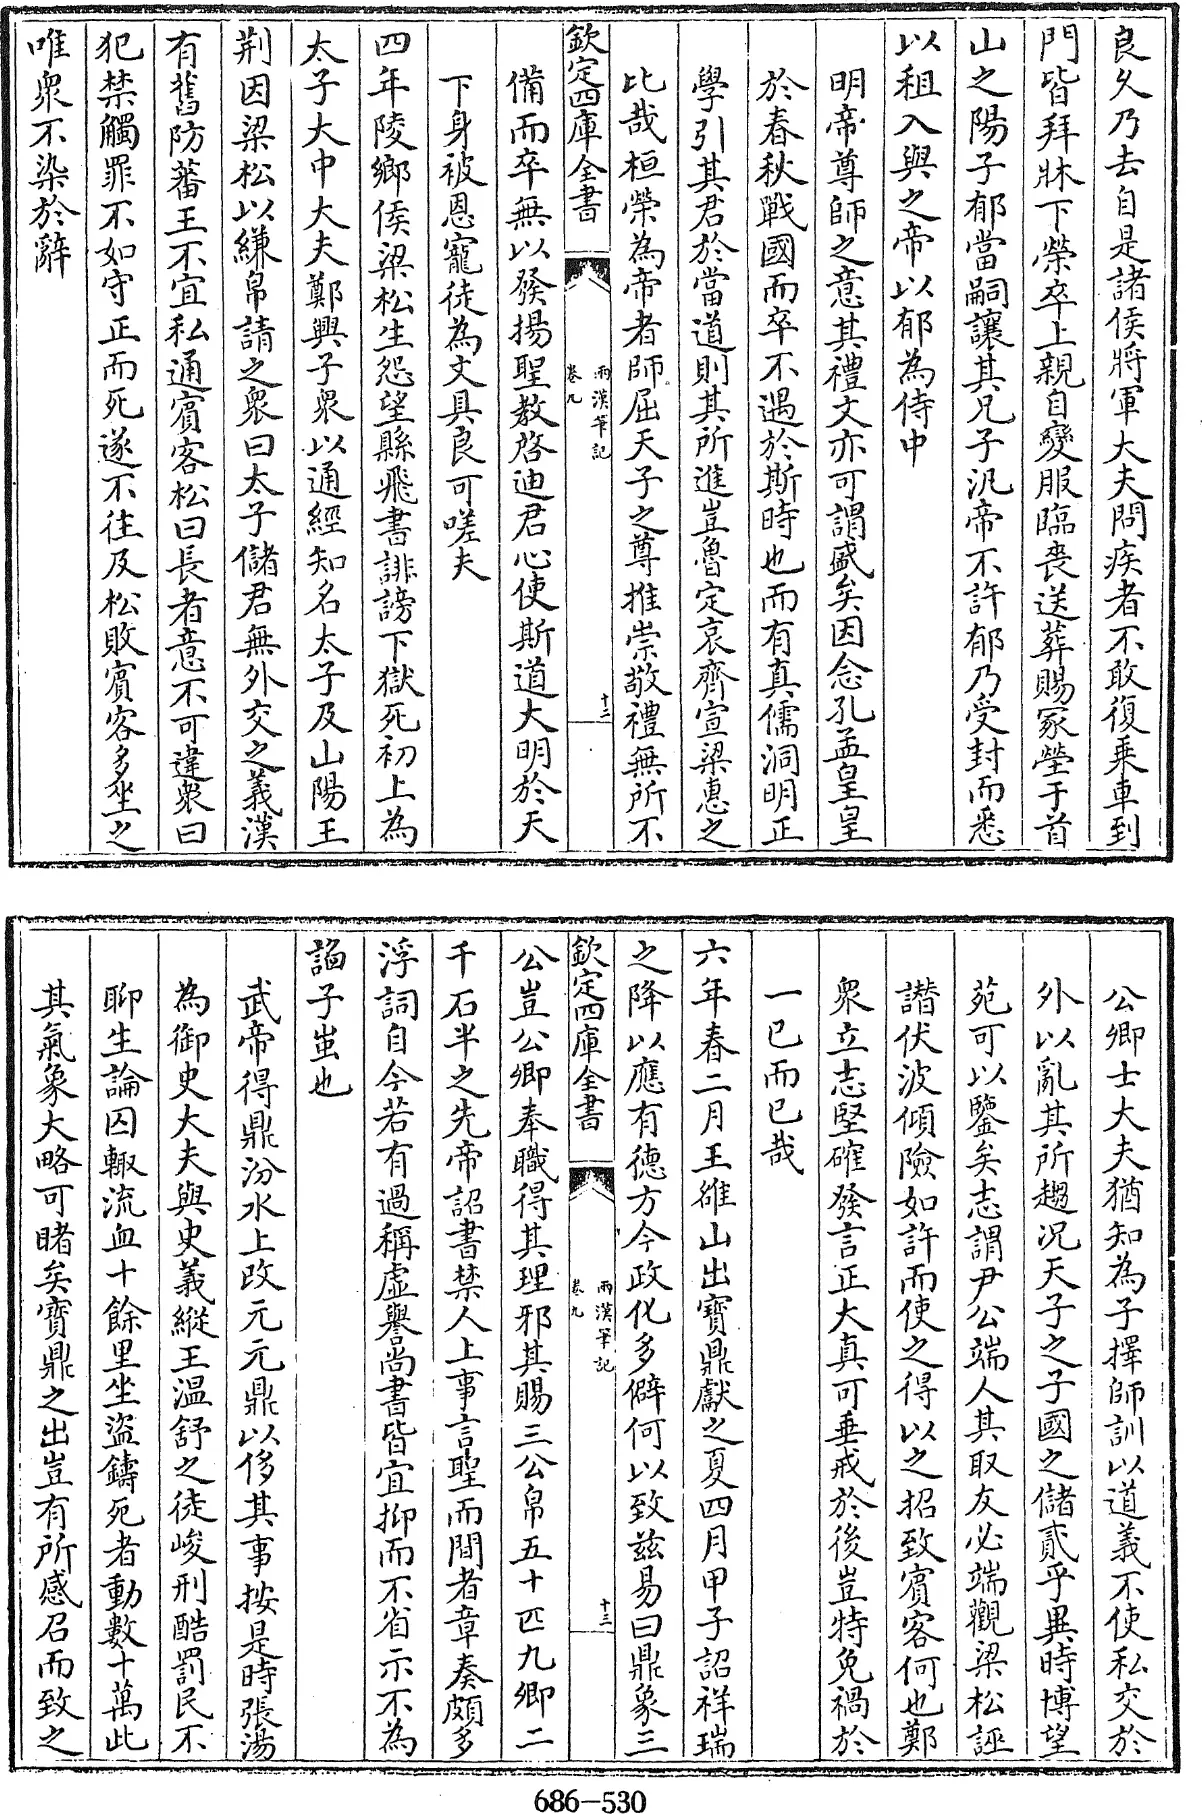 良久乃去自是諸侯將軍大夫問疾者不敢復乗車到
門皆拜牀下榮卒上親自變服臨喪送葬賜冢塋于首
山之陽子郁當嗣讓其兄子汎帝不許郁乃受封而悉
以租入與之帝以郁為侍中
明帝尊師之意其禮文亦可謂盛矣因念孔孟皇皇
於春秋戰國而卒不遇於斯時也而有真儒洞明正
學引其君於當道則其所進豈魯定哀齊宣梁惠之
比哉桓榮為帝者師屈天子之尊推崇敬禮無所不
欽定四庫全書
兩漢筆記
卷九
十二
備而卒無以發揚聖教啓迪君心使斯道大明於天
下身被恩寵徒為文具良可嗟夫
四年陵鄉侯梁松生怨望縣飛書誹謗下獄死初上為
太子大中大夫鄭興子衆以通經知名太子及山陽王
荆因梁松以縑帛請之衆曰太子儲君無外交之義漢
有舊防蕃王不宜私通賓客松曰長者意不可違衆曰
犯禁觸罪不如守正而死遂不往及松敗賓客多坐之
唯衆不染於辭
公卿士大夫猶知為子擇師訓以道義不使私交於
外以亂其所趨况天子之子國之儲貳乎異時博望
苑可以鑒矣志謂尹公端人其取友必端觀梁松誣
譖伏波傾險如許而使之得以之招致賓客何也鄭
衆立志堅確發言正大真可垂戒於後豈特免禍於
一已而已哉
六年春二月王雒山出寶鼎獻之夏四月甲子詔祥瑞
之降以應有德方今政化多僻何以致兹易曰鼎象三
欽定四庫全書
兩漢筆記
卷九
十三
公豈公卿奉職得其理邪其賜三公帛五十匹九卿二
千石半之先帝詔書禁人上事言聖而間者章奏頗多
浮詞自今若有過稱虛譽尚書皆宜抑而不省示不為
諂子蚩也
武帝得鼎汾水上改元元鼎以侈其事按是時張湯
為御史大夫與吏義縱王温舒之徒峻刑酷罰民不
聊生論囚輙流血十餘里坐盜鑄死者動數十萬此
其氣象大略可睹矣寶鼎之出豈有所感召而致之
686-530